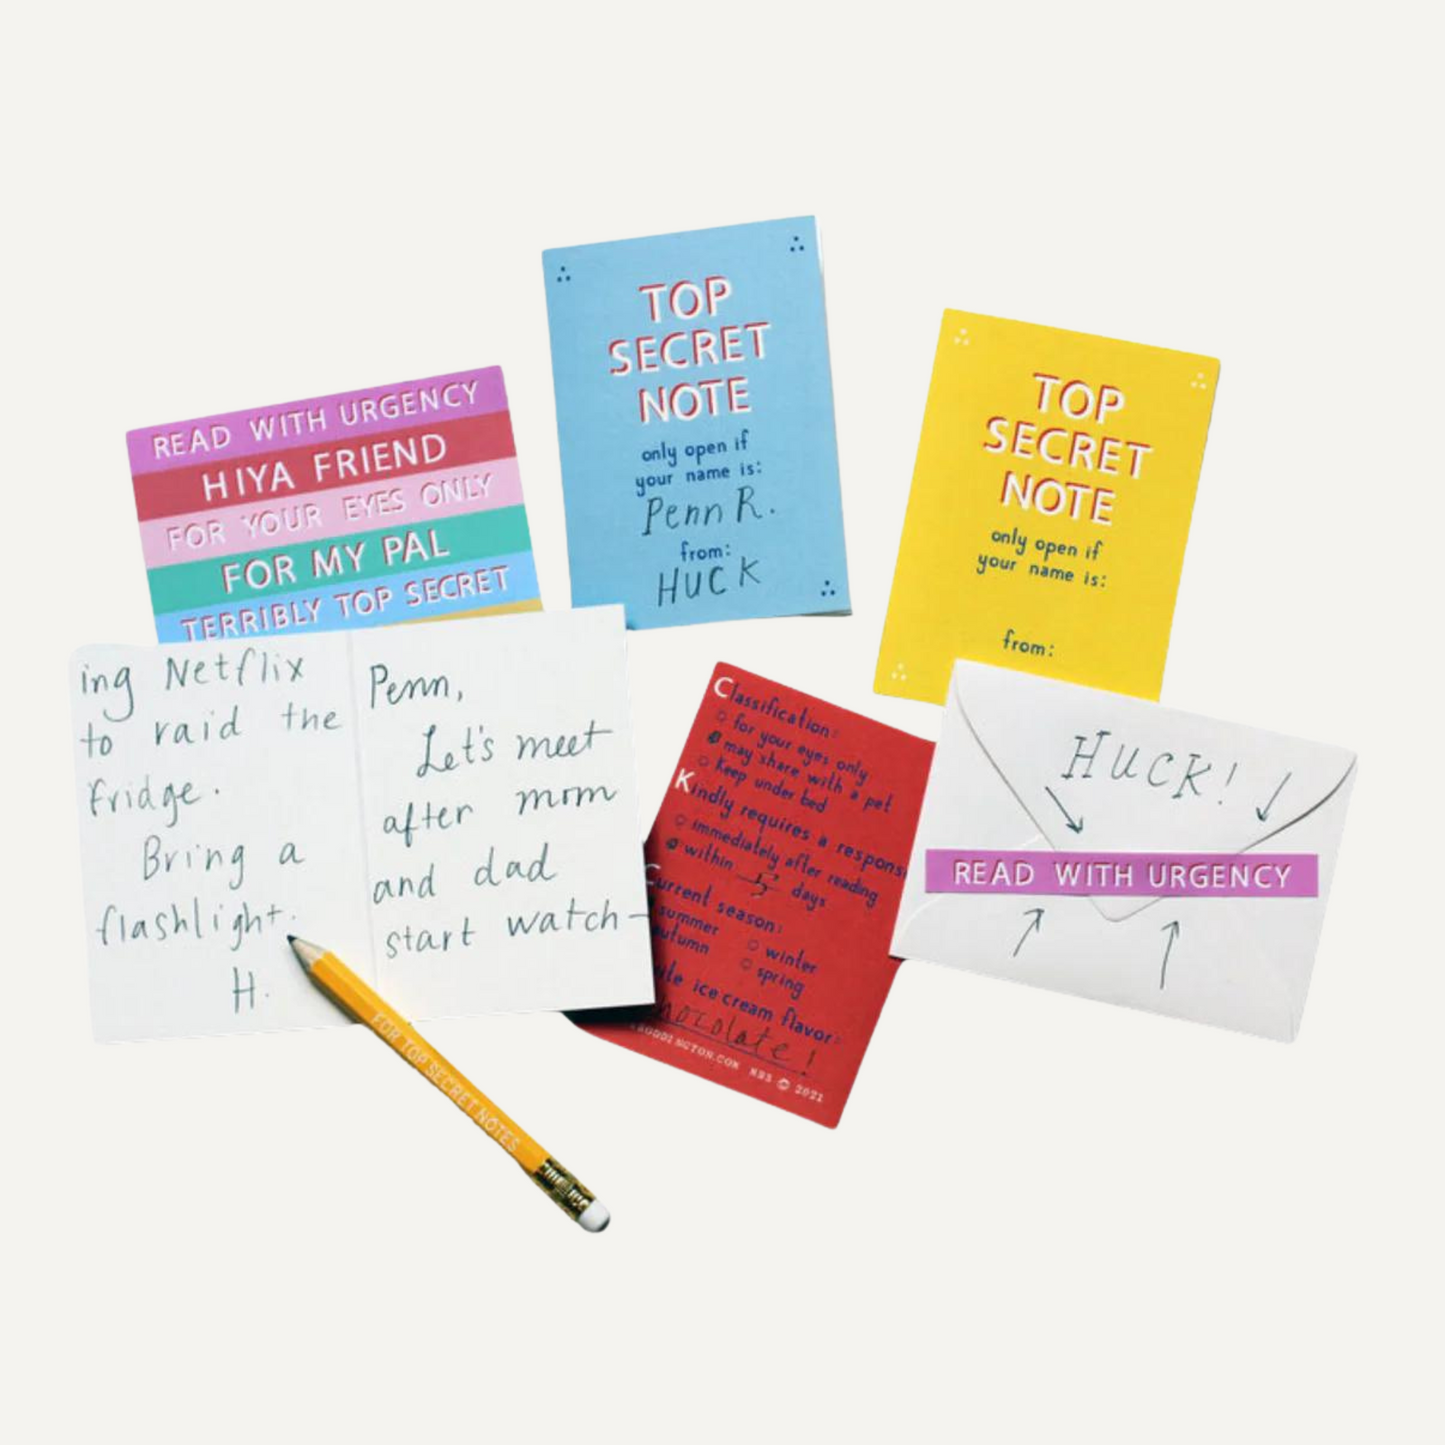 READ WITH URGENCY
HIYA FRIEND
FOR YOUR EYES ONLY
FOR MY PAL
TERRIBLY TOP SECRET
TOP
SECRET
NOTE
only open if
your name is:
Penn R.
from:
HUCK
TOP
SECRET
NOTE
only open if
your name is:
from:
ing Netflix
to raid the
fridge.
Bring a
flashlight.
H.
Penn,
Let's meet
after mom
and dad
start watch-
FOR TOP SECRET NOTES
Classification:
for your eyes only
may share with a pet
keep under bed
Kindly requires a respons
immediately after reading
within 5 days
Current season:
summer
winter
autumn
spring
ice cream flavor:
hocolate!
RBODDINGTON.COM MRS © 2021
HUCK!
READ WITH URGENCY